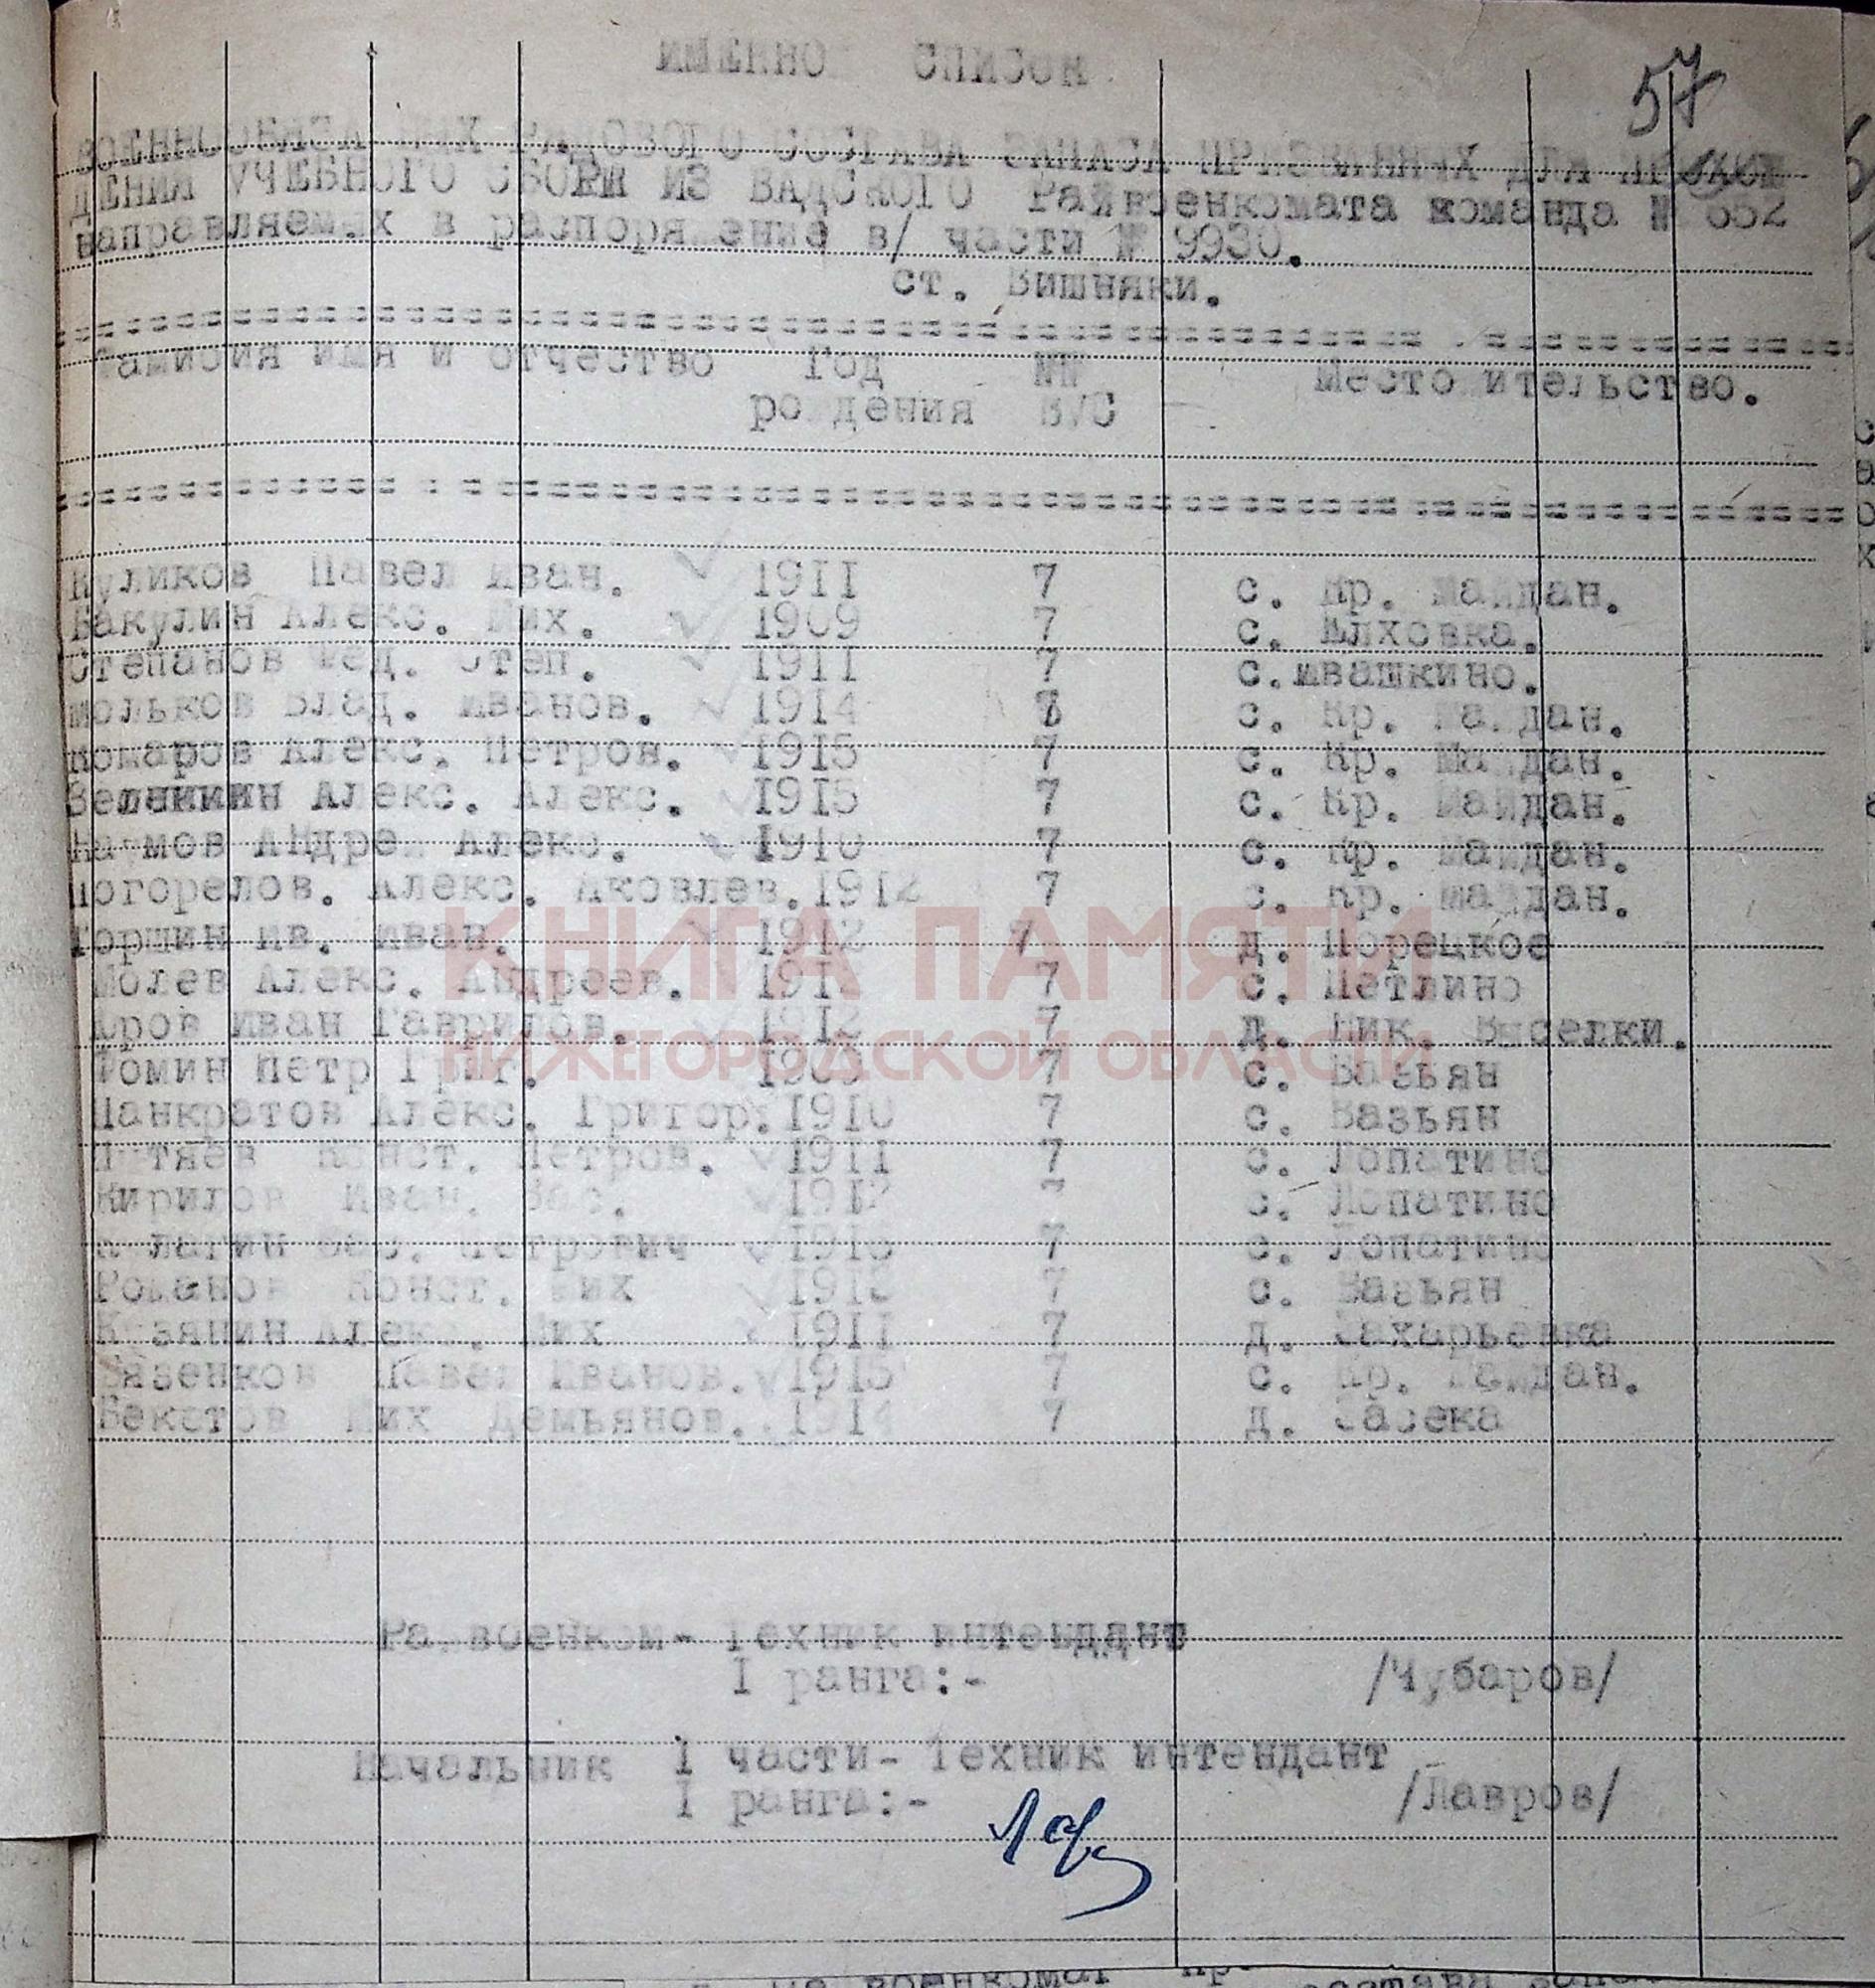 57
ИМЕННО СПИСОК
ВОЕННООБЯЗАННЫХ РЯДОВОГО СОСТАВА ЗАПАСА ПРИЗВАННЫХ ДЛЯ ПРОХОЖ
ДЕНИЯ УЧЕБНОГО СБОРЫ ИЗ ВАДСКОГО Райвоенкомата команда № 652
направляемых в распоряжение в/ части № 9930.
ст. Вишняки.
Фамилия имя и отчество Год №№ Место жительство.
рождения ВУС
Куликов Павел Иван. 1911 7 с. Кр. Майдан.
Бакулин Алекс. Мих. 1909 7 с. Елховка.
Степанов Фед. Степ. 1911 7 с.Ивашкино.
Влад. Иванов. 1914 с. Кр. Майдан.
Комаров Алекс. Петров. 1915 7 с. Кр. Майдан.
Алекс. Алекс. 1915 7 с. Кр. Майдан.
Андрей Алекс. 7 с. Кр. Майдан.
Погорелов. Алекс. Яковлев. 1912 7 с. Кр. Майдан.
Горшин Ив. Иван. 1912 7 д. Порецкое
Молев Алекс. Андреев. 7 с. Петлино
Иван Гаврилов. 1912 7 д. Ник. Выселки.
Фомин Петр Григ. 1909 7 с. Вазьян
Панкратов Алекс. Григор. 1910 7 с. Вазьян
Конст. Петров. 1911 7 с. Лопатино
Кирилов Иван. Вас. 1912 7 с. Лопатино
Вас. Петрович 7 с. Лопатино
Романов Конст. Мих 7 с. Вазьян
Алекс. Мих 1911 7 д. Захарьевка
Вязенков Павел Иванов. 1915 7 с. Кр. Майдан.
Бекетов Мих Демьянов. 1914 7 д. Засека
КНИГА ПАМЯТИ
НИЖЕГОРОДСКОЙ ОБЛАСТИ
Райвоенком- Техник интендант
I ранга:- /Чубаров/
Начальник I части- Техник интендант
I ранга:- /Лавров/